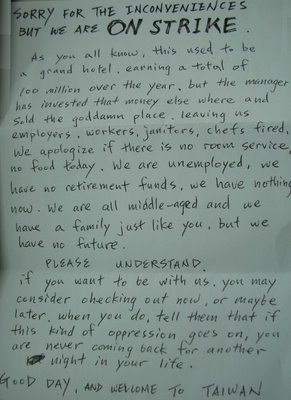 SORRY FOR THE INCONVENIENCES
BUT WE ARE ON STRIKE.
As you all know, this used to be
a grand hotel. earning a total of
100 million over the year. but the manager
has invested that money else where and
sold the goddamn place. leaving us
employers. workers, janitors, chefs fired.
We apologize if there is no room service,
no food today. We are unemployed, we
have no retirement funds. we have nothing
now. We are all middle-aged and we
have a family just like you. but we
have no future.
PLEASE UNDERSTAND.
if you want to be with us. you may
consider checking out now, or maybe
later. when you do, tell them that if
this kind of oppression goes on, you
are never coming back for another
night in your life.
GOOD DAY, AND WELCOME TO TAIWAN